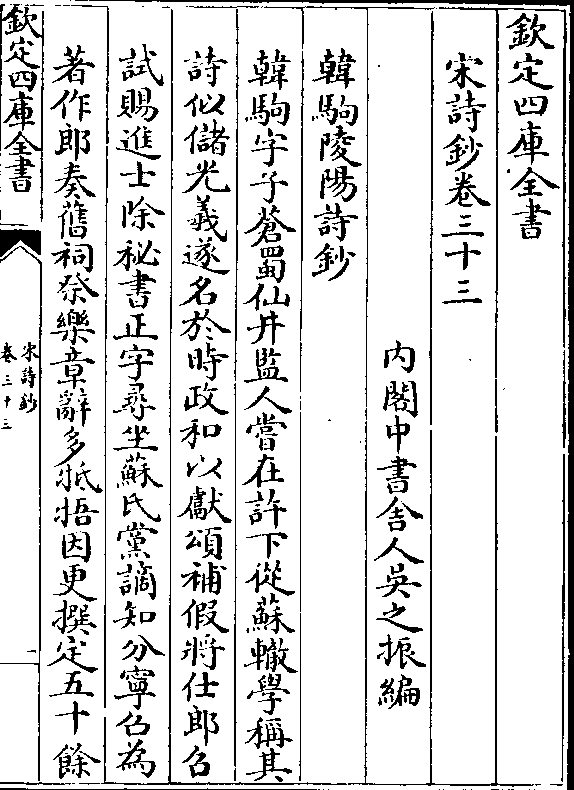 欽定四庫全書
宋詩鈔卷三十三
內閣中書舎人吳之振編
韓駒陵陽詩鈔
韓駒字子蒼蜀仙井監人嘗在許下從蘇轍學稱其
詩似儲光羲遂名於時政和以獻頌補假將仕郎召
試賜進士除秘書正字尋坐蘇氏黨謫知分寧召為
著作郎奏舊祠祭樂章辭多牴牾因更撰定五十餘
欽定四庫全書
宋詩鈔
卷三十三
一